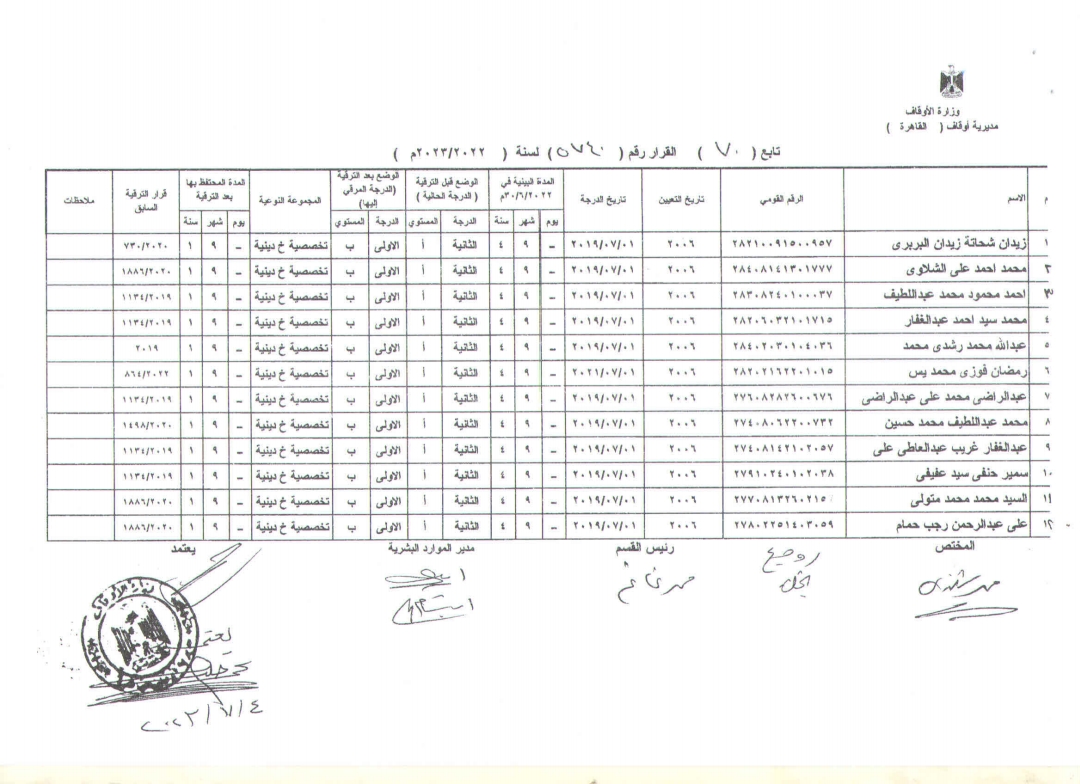 وزارة الأوقاف
مديرية أوقاف ( القاهرة )
تابع ( ٧٠ ) القرار رقم ( ٥٧٤٠ ) لسنة ( ٢٠٢٣/٢٠٢٢م )
م الاسم الرقم القومي تاريخ التعيين تاريخ الدرجة المدة البينية في ٢٠٢٢/٦/٣٠م الوضع قبل الترقية ( الدرجة الحالية ) الوضع بعد الترقية (الدرجة المرقي إليها) المجموعة النوعية المدة المحتفظ بها بعد الترقية قرار الترقية السابق ملاحظات
يوم شهر سنة الدرجة المستوي الدرجة المستوي يوم شهر سنة
١ زيدان شحاتة زيدان البربرى ٢٨٢١٠٠٩١٥٠٠٩٥٧ ٢٠٠٦ ٢٠١٩/٠٧/٠١ - ٩ ٤ الثانية أ الاولى ب تخصصية خ دينية - ٩ ١ ٧٣٠/٢٠٢٠
٢ محمد احمد على الشلاوى ٢٨٤٠٨١٤١٣٠١٧٧٧ ٢٠٠٦ ٢٠١٩/٠٧/٠١ - ٩ ٤ الثانية أ الاولى ب تخصصية خ دينية - ٩ ١ ١٨٨٦/٢٠٢٠
٣ احمد محمود محمد عبداللطيف ٢٨٣٠٨٢٤٠١٠٠٠٣٧ ٢٠٠٦ ٢٠١٩/٠٧/٠١ - ٩ ٤ الثانية أ الاولى ب تخصصية خ دينية - ٩ ١ ١١٣٤/٢٠١٩
٤ محمد سيد احمد عبدالغفار ٢٨٢٠٦٠٣٢١٠١٧١٥ ٢٠٠٦ ٢٠١٩/٠٧/٠١ - ٩ ٤ الثانية أ الاولى ب تخصصية خ دينية - ٩ ١ ١١٣٤/٢٠١٩
٥ عبدالله محمد رشدى محمد ٢٨٤٠٢٠٣٠١٠٤٠٣٦ ٢٠٠٦ ٢٠١٩/٠٧/٠١ - ٩ ٤ الثانية أ الاولى ب تخصصية خ دينية - ٩ ١ ٢٠١٩
٦ رمضان فوزى محمد يس ٢٨٢٠٢١٦٢٢٠١٠١٥ ٢٠٠٦ ٢٠٢١/٠٧/٠١ - ٩ ٤ الثانية أ الاولى ب تخصصية خ دينية - ٩ ١ ٨٦٤/٢٠٢٢
٧ عبدالراضى محمد على عبدالراضى ٢٧٦٠٨٢٨٢٦٠٠٦٧٦ ٢٠٠٦ ٢٠١٩/٠٧/٠١ - ٩ ٤ الثانية أ الاولى ب تخصصية خ دينية - ٩ ١ ١١٣٤/٢٠١٩
٨ محمد عبداللطيف محمد حسين ٢٧٤٠٨٠٦٢٢٠٠٧٣٢ ٢٠٠٦ ٢٠١٩/٠٧/٠١ - ٩ ٤ الثانية أ الاولى ب تخصصية خ دينية - ٩ ١ ١٤٩٨/٢٠٢٠
٩ عبدالغفار غريب عبدالعاطى على ٢٧٤٠٨١٤٢١٠٢٠٥٧ ٢٠٠٦ ٢٠١٩/٠٧/٠١ - ٩ ٤ الثانية أ الاولى ب تخصصية خ دينية - ٩ ١ ١١٣٤/٢٠١٩
١٠ سمير حنفى سيد عفيفى ٢٧٩١٠٢٤٠١٠٢٠٣٨ ٢٠٠٦ ٢٠١٩/٠٧/٠١ - ٩ ٤ الثانية أ الاولى ب تخصصية خ دينية - ٩ ١ ١١٣٤/٢٠١٩
١١ السيد محمد محمد متولى ٢٧٧٠٨١٣٢٦٠٢١٥ ٢٠٠٦ ٢٠١٩/٠٧/٠١ - ٩ ٤ الثانية أ الاولى ب تخصصية خ دينية - ٩ ١ ١٨٨٦/٢٠٢٠
١٢ على عبدالرحمن رجب حمام ٢٧٨٠٢٢٥١٤٠٣٠٥٩ ٢٠٠٦ ٢٠١٩/٠٧/٠١ - ٩ ٤ الثانية أ الاولى ب تخصصية خ دينية - ٩ ١ ١٨٨٦/٢٠٢٠
المختص رئيس القسم مدير الموارد البشرية يعتمد
يعتمد